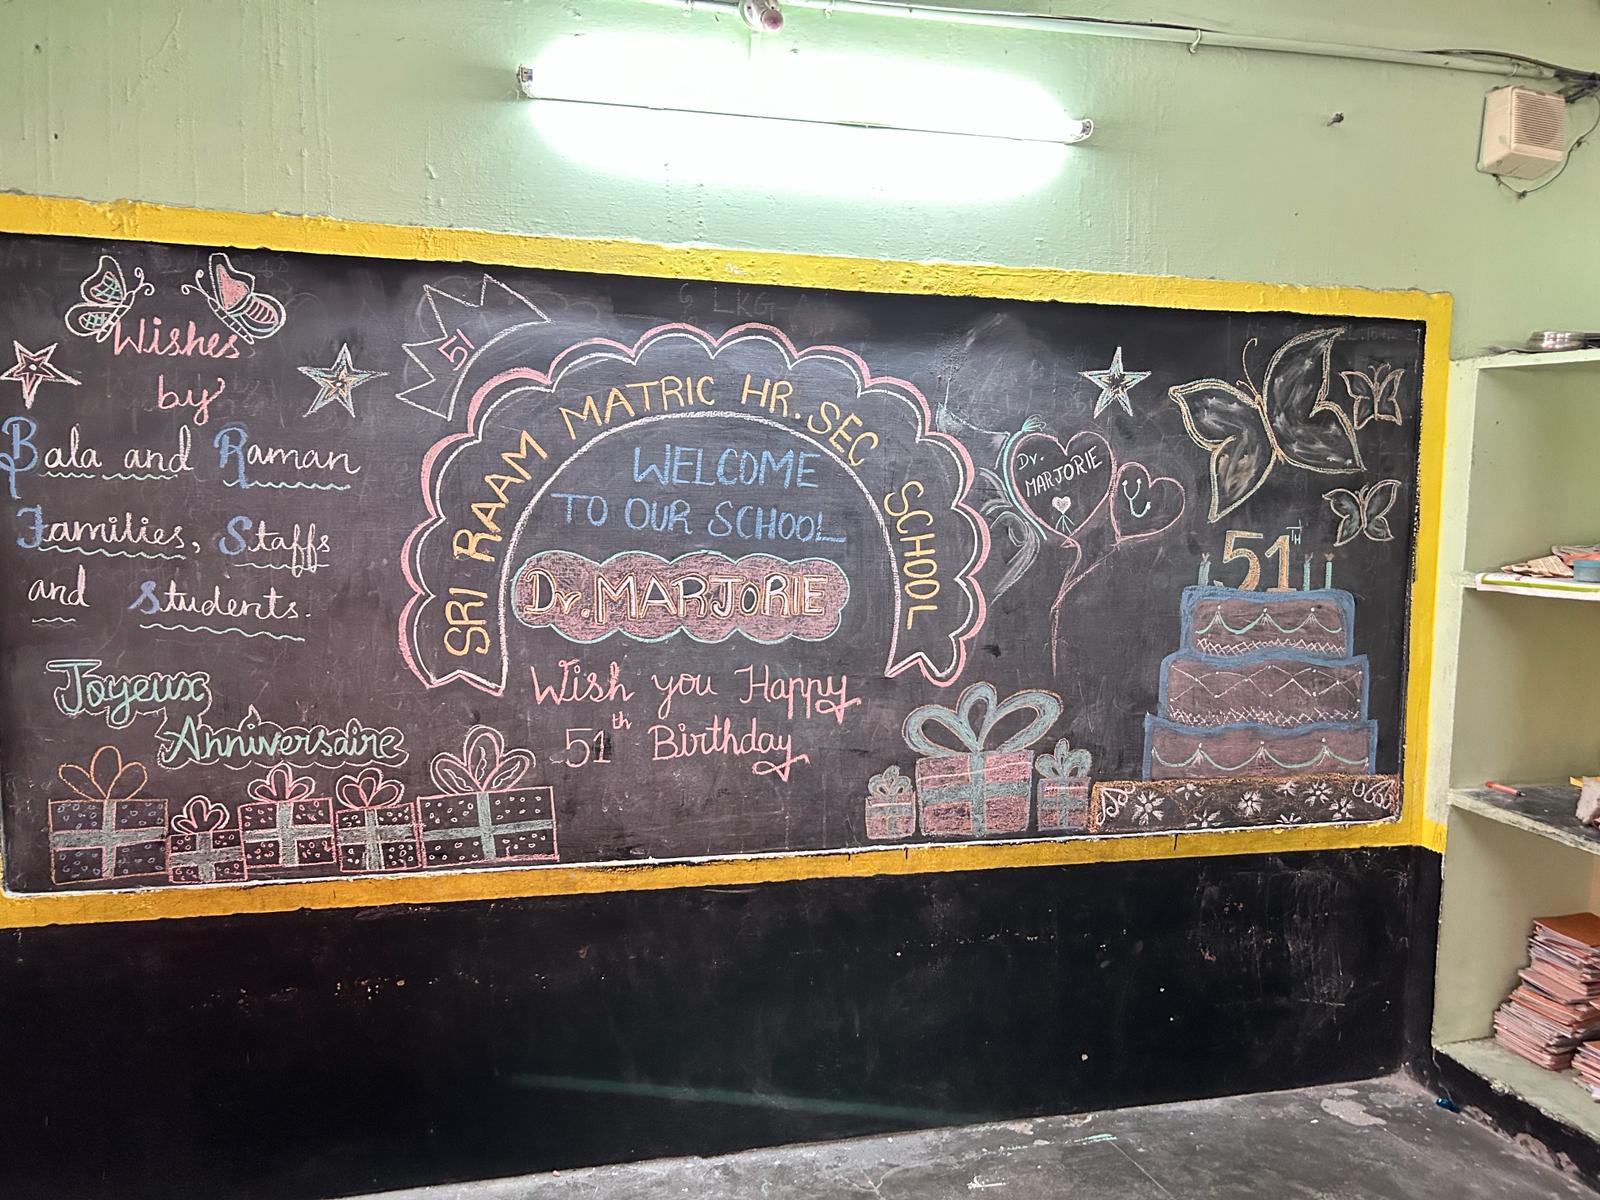 Wishes
by
Bala and Raman
Families, Staffs
and Students.
Joyeux
Anniversaire
51
SRI RAAM MATRIC HR. SEC SCHOOL
WELCOME
TO OUR SCHOOL
Dr. MARJORIE
Wish you Happy
51th Birthday
Dr.
MARJORIE
51TH
LKG